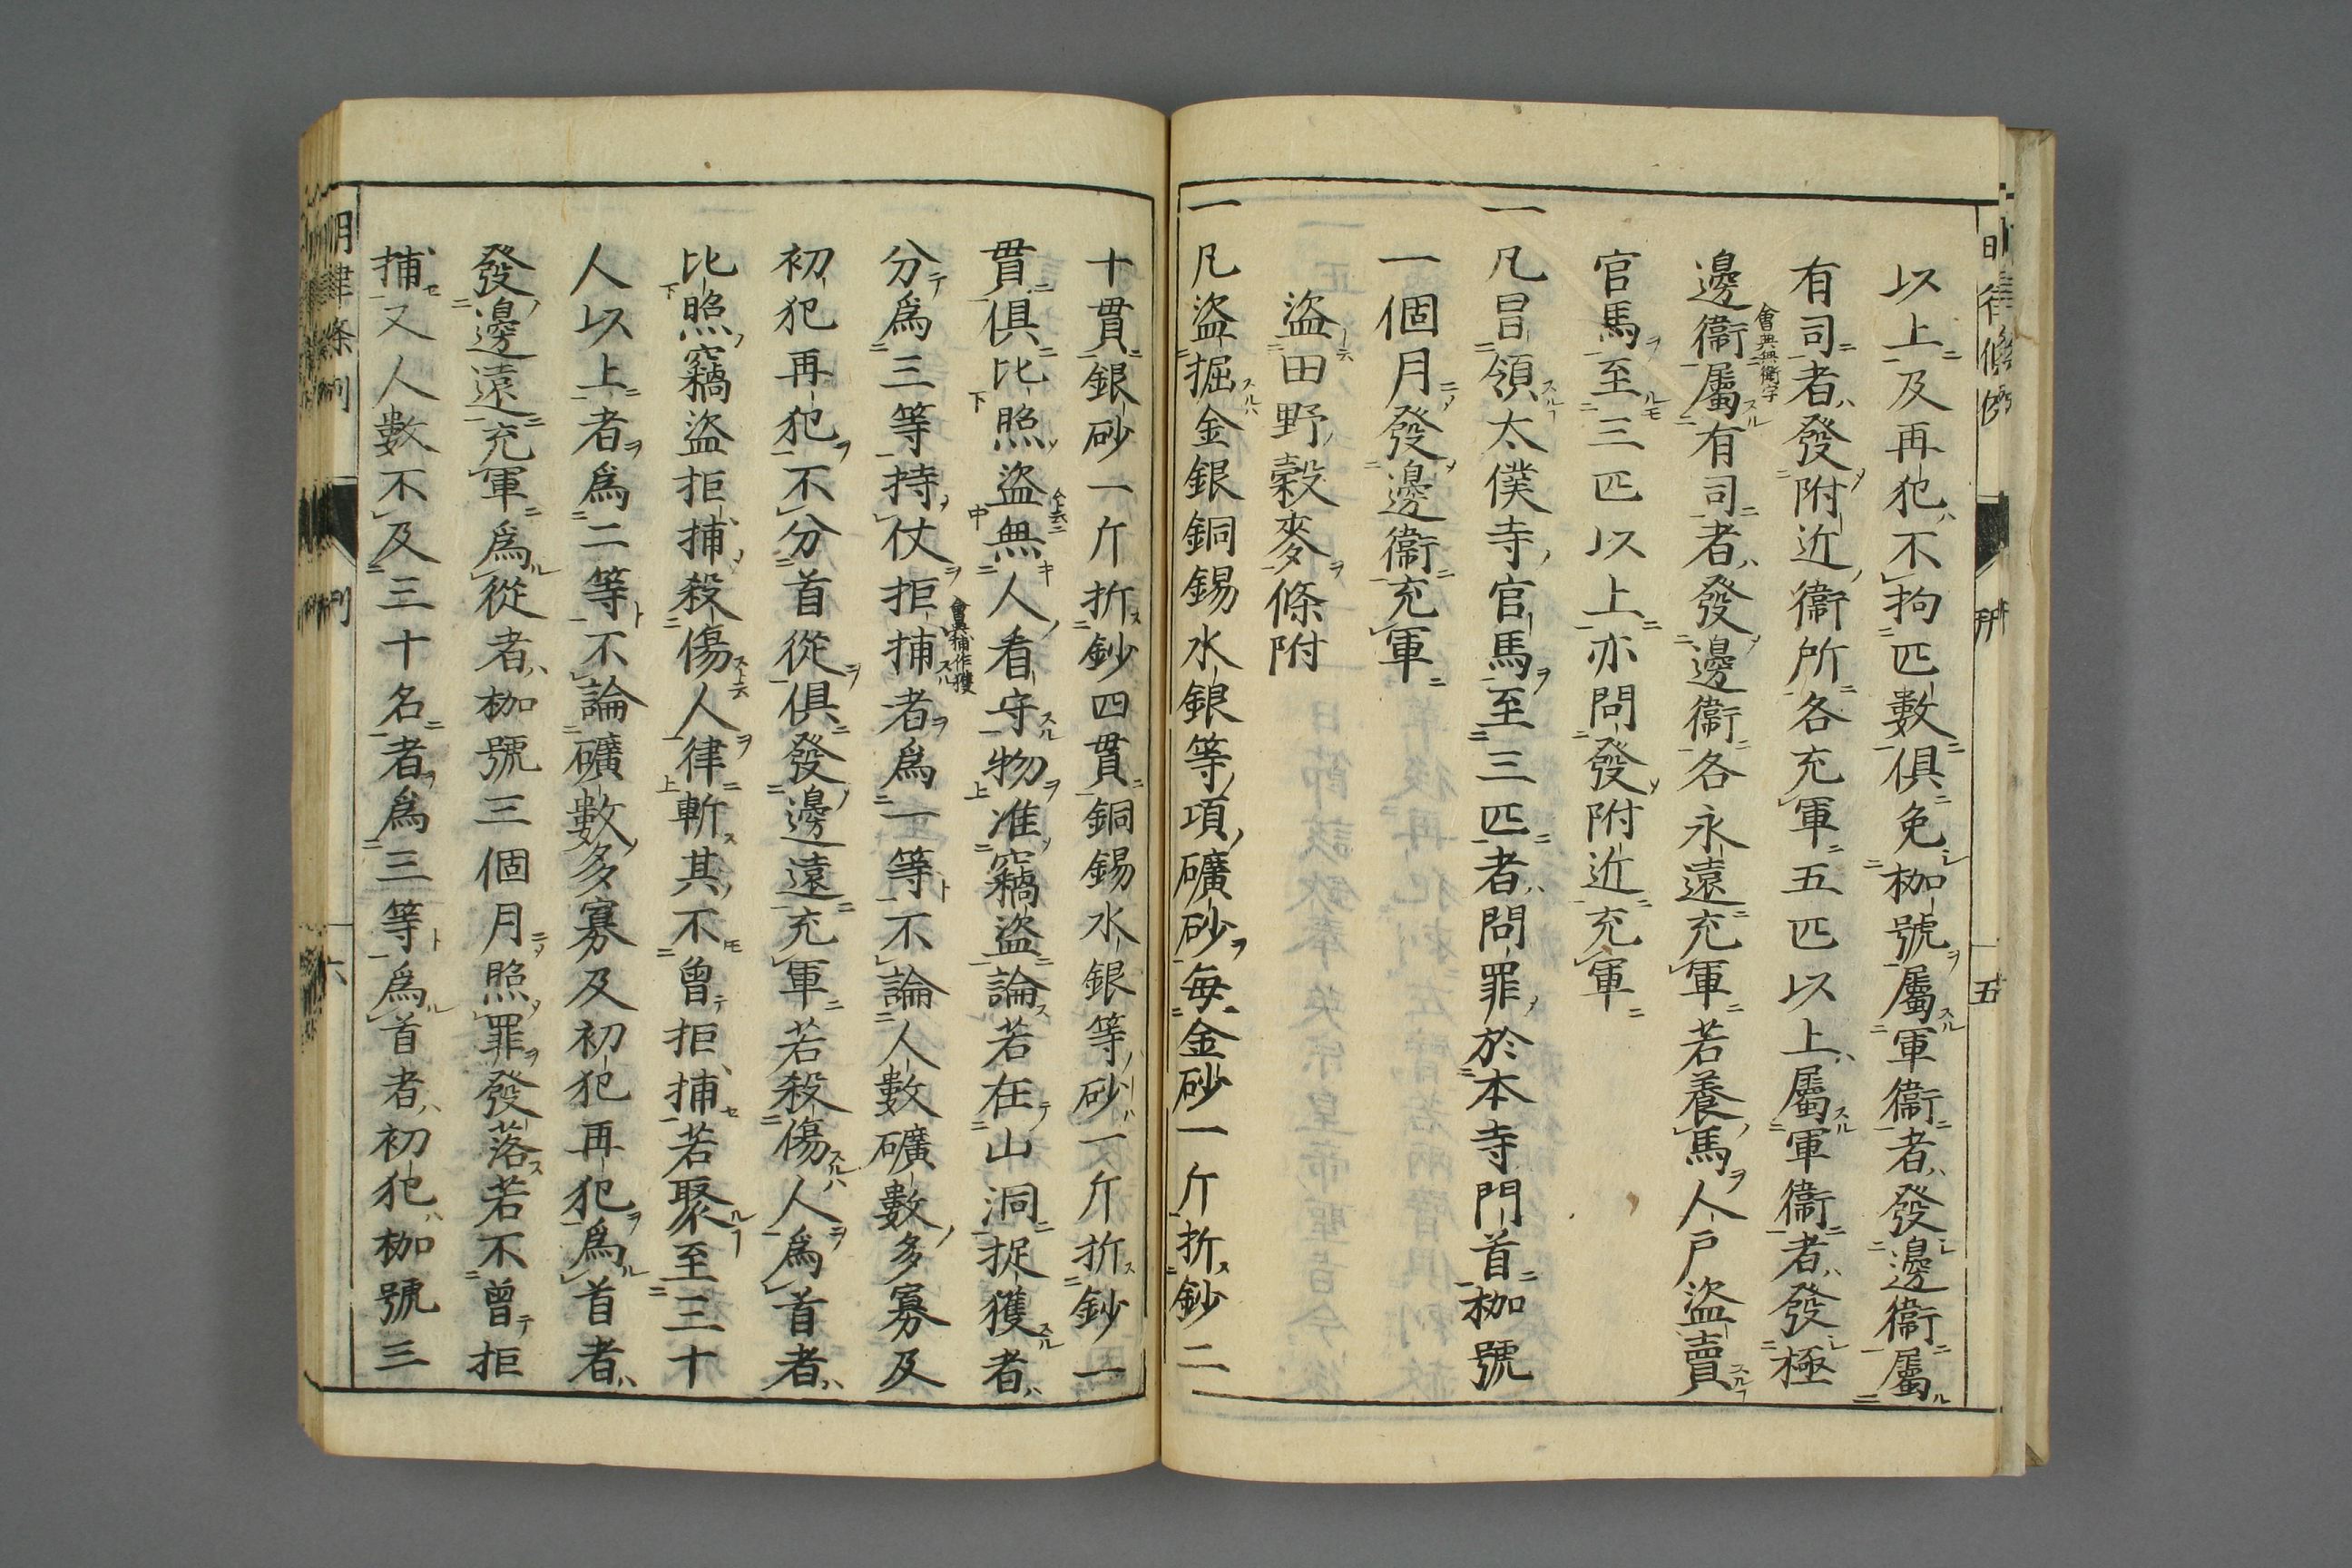 以上及再犯不拘匹數俱免枷號屬軍衞者發邊衞屬
有司者發附近衞所各充軍五匹以上屬軍衞者發極
邊衞屬有司者發邊衞各永遠充軍若養馬人戸盜賣
會典無衞字
官馬至三匹以上亦問發附近充軍
一凡冒領太僕寺官馬至三匹者問罪於本寺門首枷號
一個月發邊衞充軍
盜田野穀麥條附
一凡盜掘金銀銅錫水銀等項礦砂每金砂一斤折鈔二
十貫銀砂一斤折鈔四貫銅錫水銀等砂一斤折鈔一
貫俱比照盜無人看守物准竊盜論若在山洞捉獲者
分爲三等持仗拒捕者爲一等不論人數礦數多寡及
會典捕作獲
初犯再犯不分首從俱發邊遠充軍若殺傷人爲首者
比照竊盜拒捕殺傷人律斬其不曾拒捕若聚至三十
人以上者爲二等不論礦數多寡及初犯再犯爲首者
發邊遠充軍爲從者枷號三個月照罪發落若不曾拒
捕又人數不及三十名者爲三等爲首者初犯枷號三
明律條例
六
五